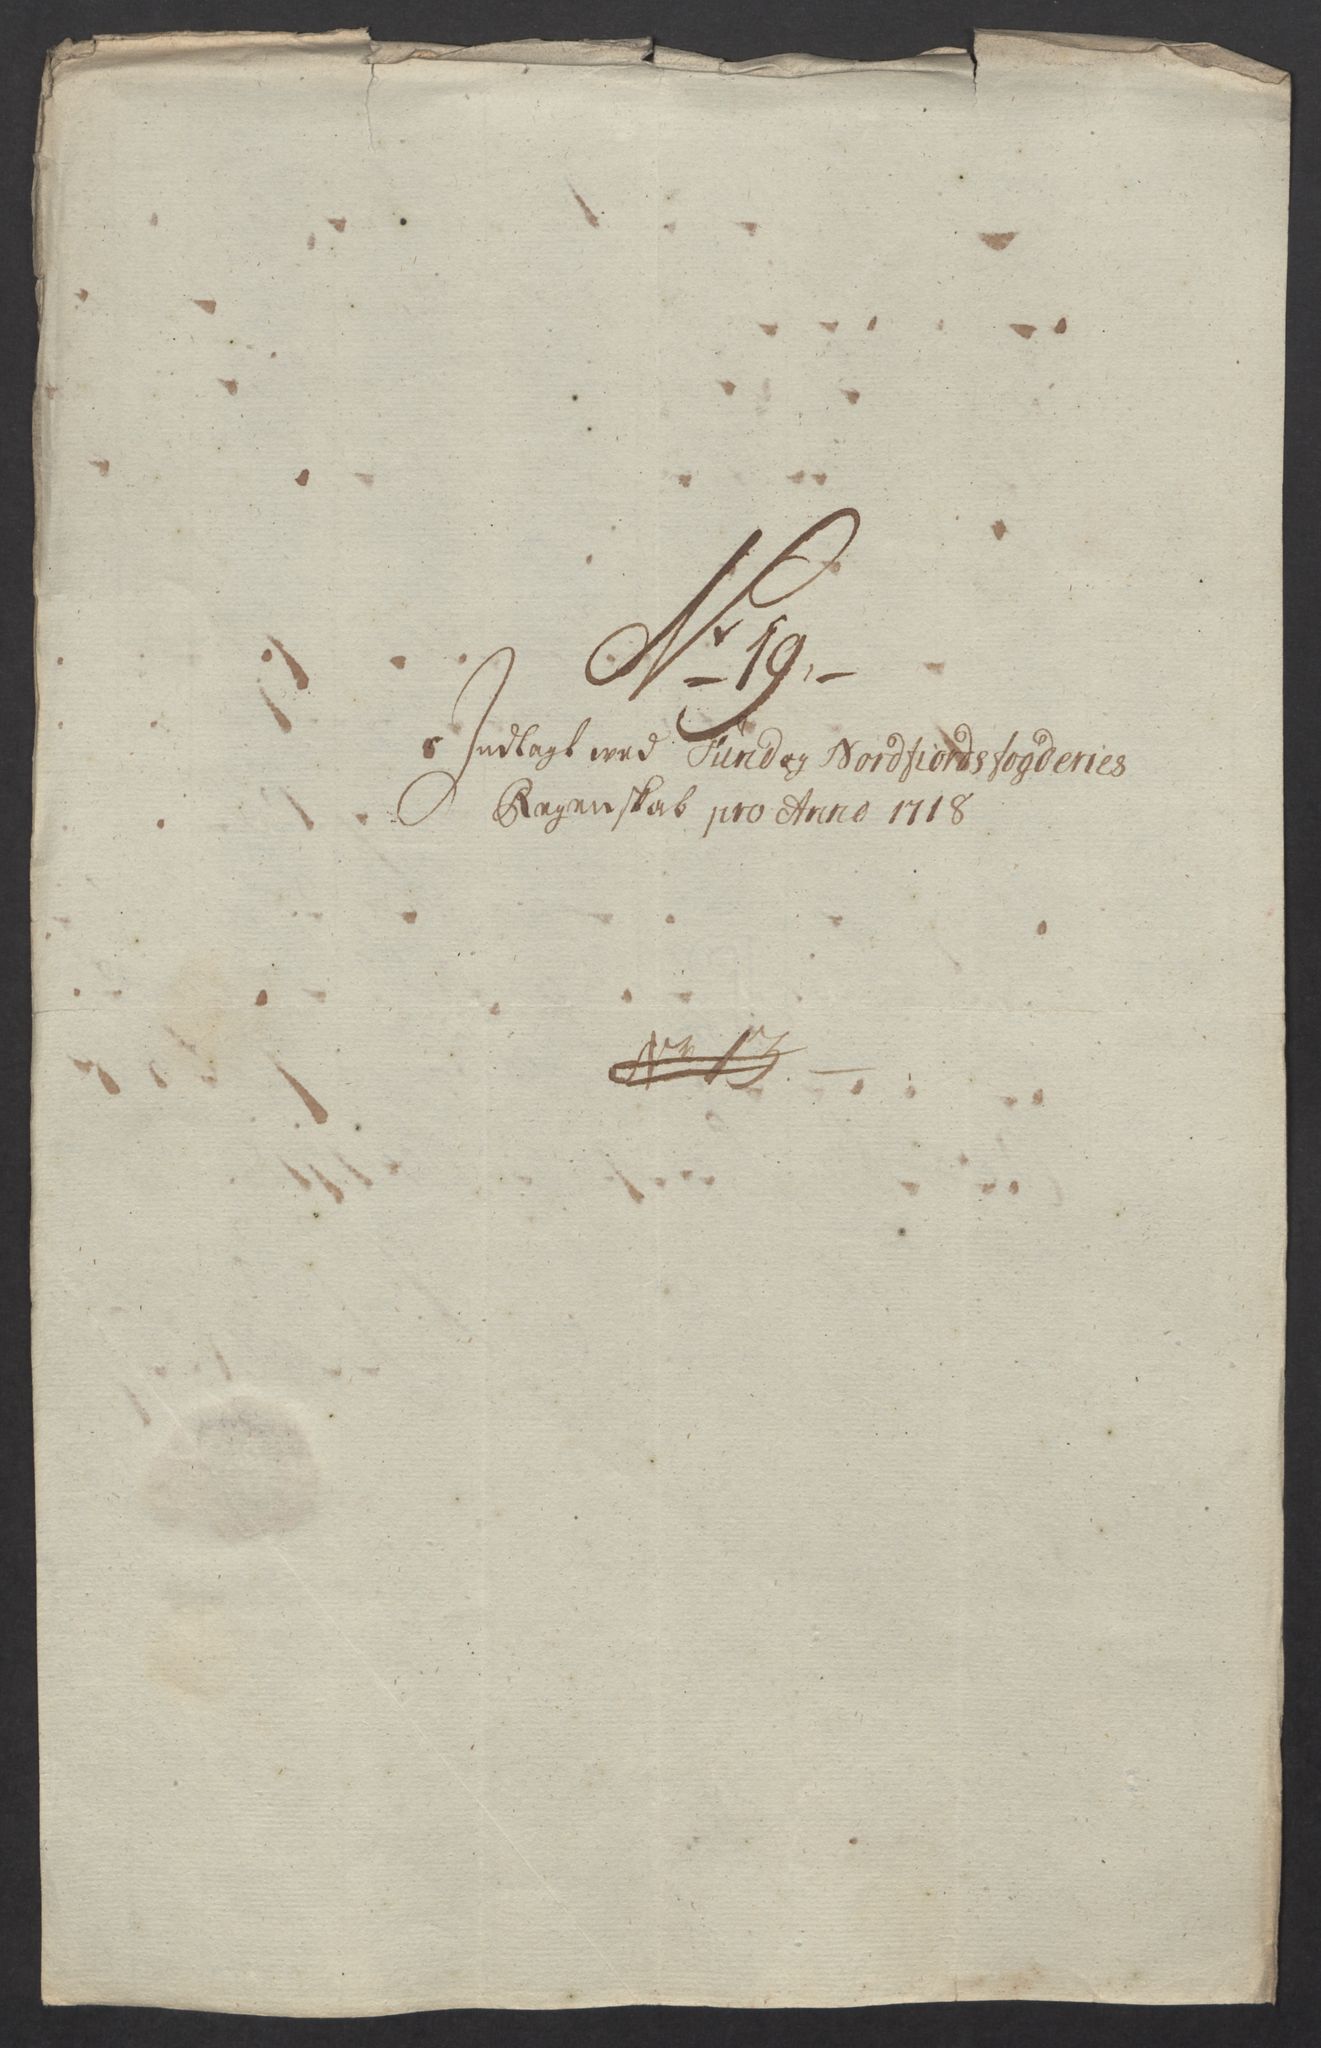 Nr 19.
Indlagt ved Sund og Nordfiords fogderies
Regenskab pro Anno 1718
No 13.